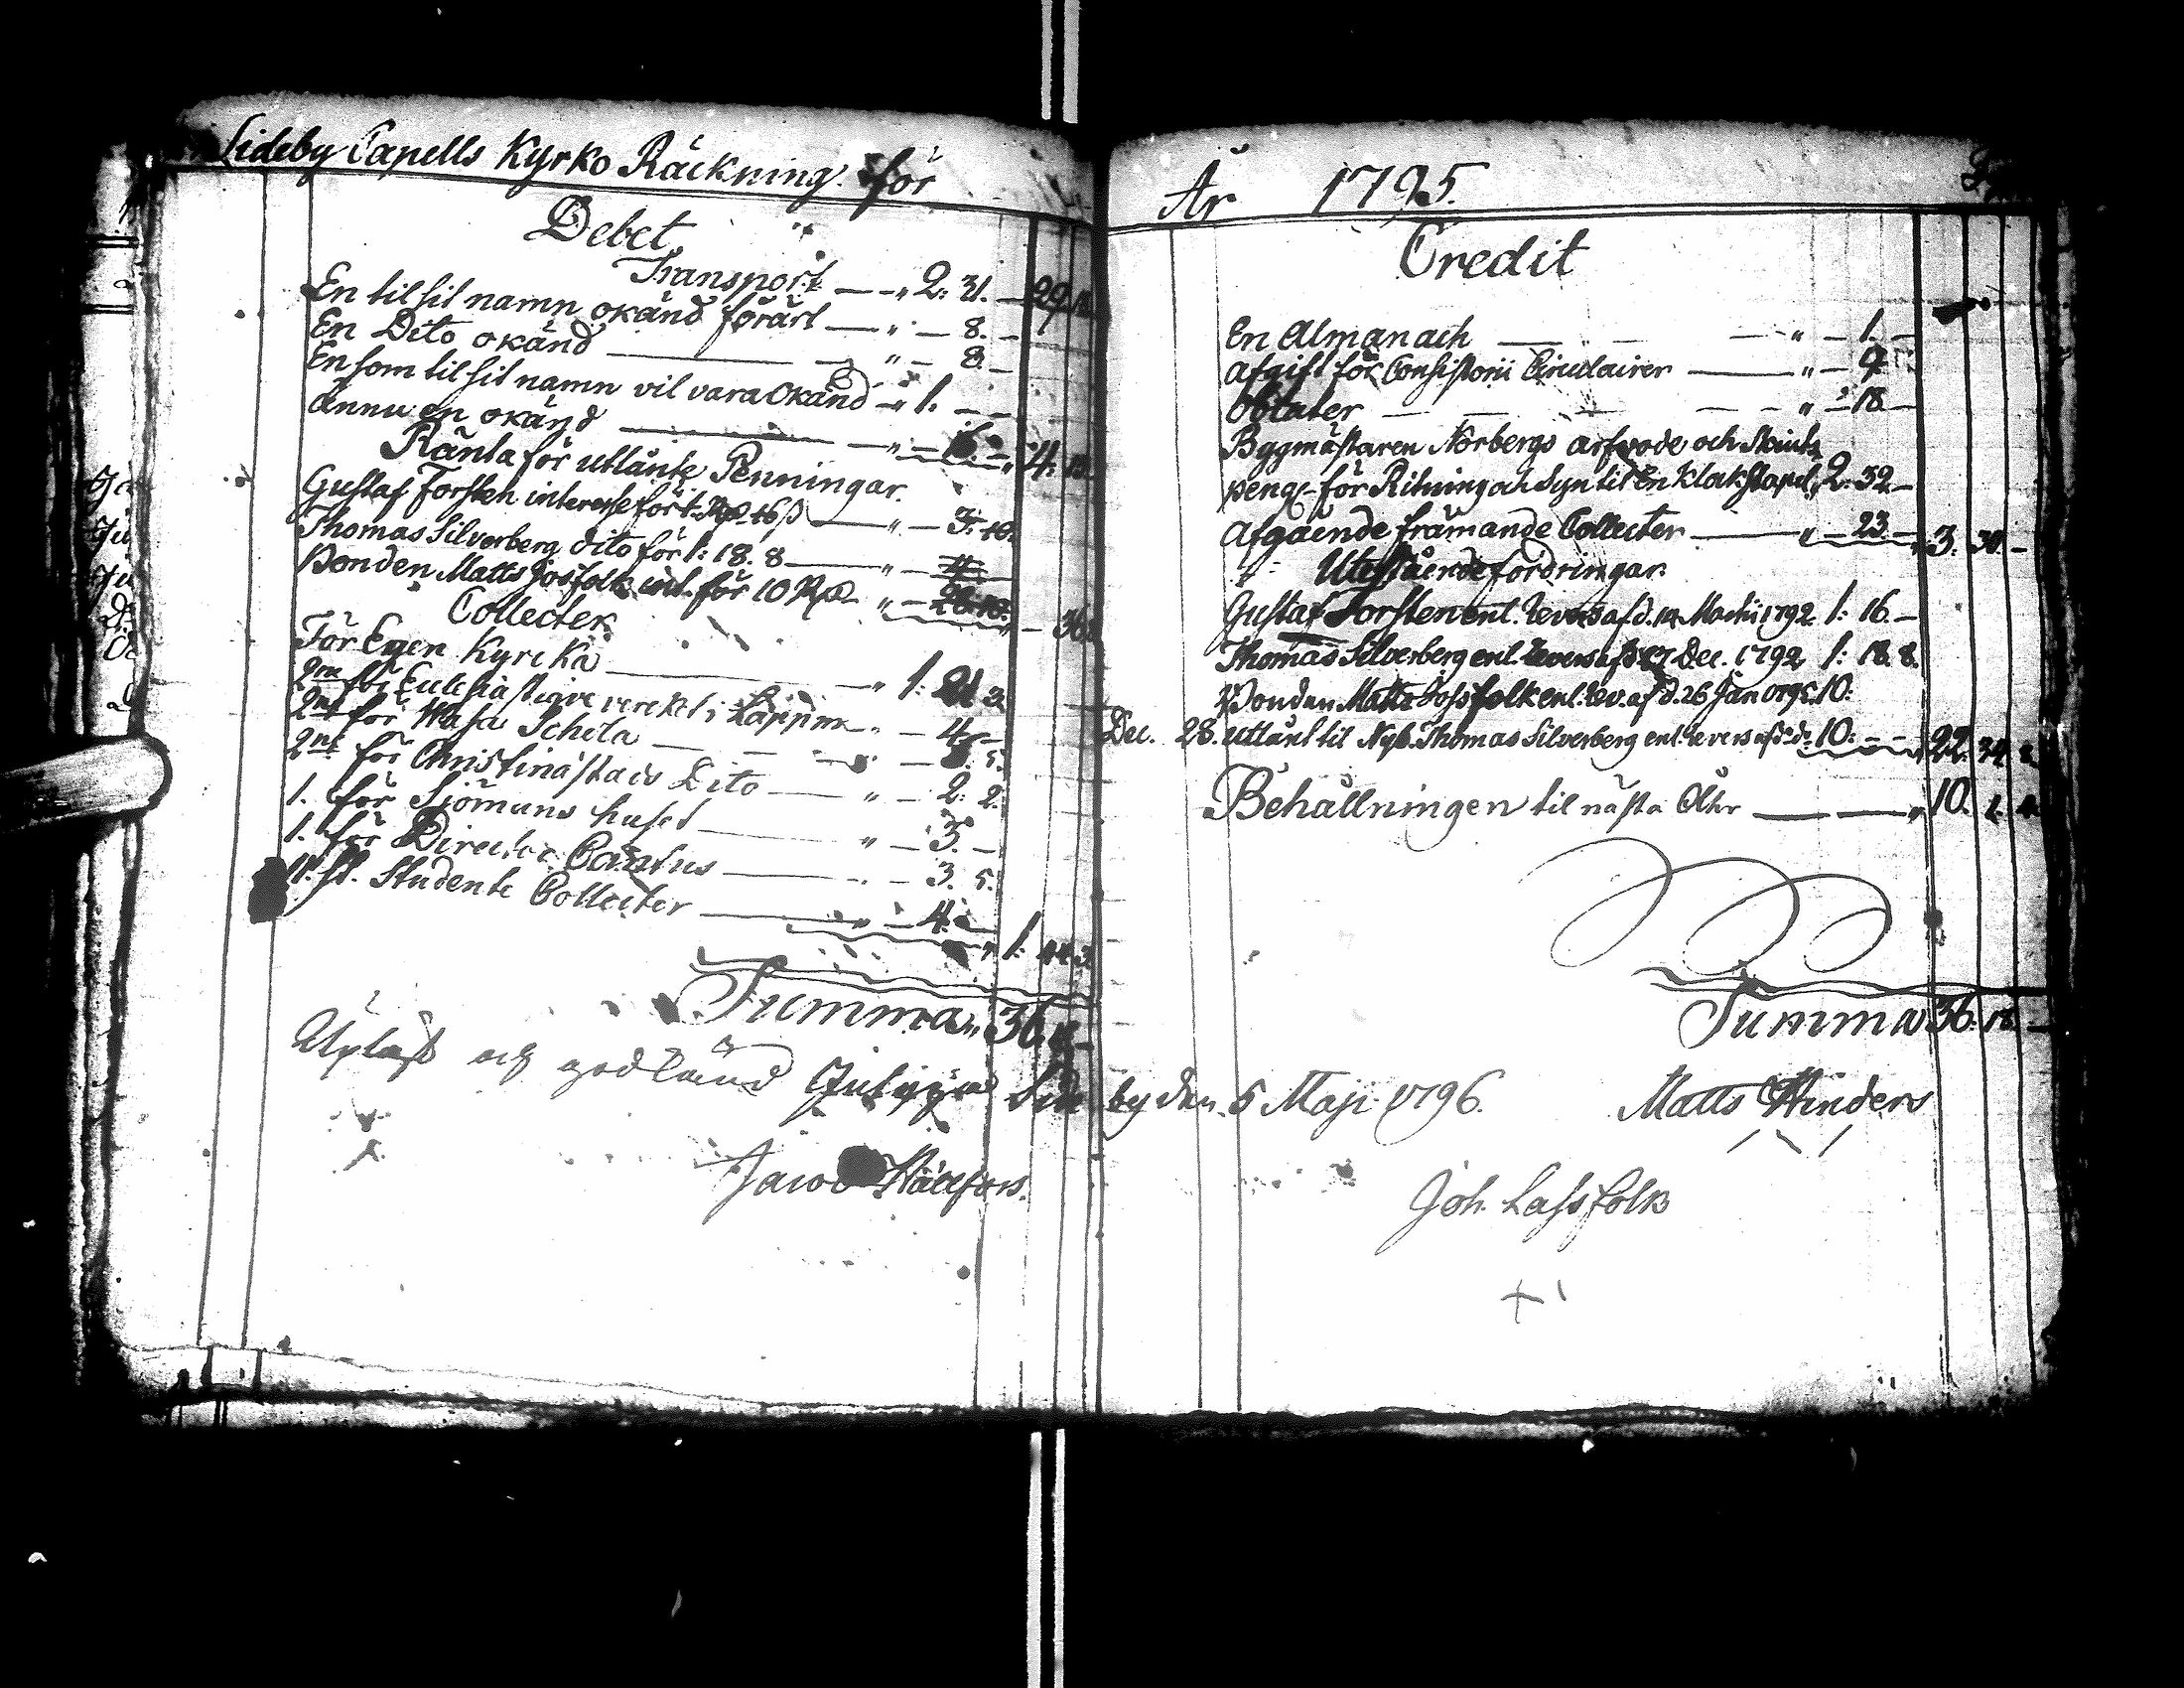 Sideby Capells Kyrko Räckning för
Debet
Transport — " 2: 31. — 29
En til sit namn okänd förärt — " — 8. —
En Dito okänd — " — 8. —
En som til sit namn vil vara okänd — " 1. — —
Ännu en okänd — " — 4:
Ränta för utlånte Penningar.
Gustaf Forsten interesse för 1 Rd 16 ß — " — 3: 10.
Thomas Silverberg dito för 1: 18. 8 — " — 4.
Bonden Matts Josfolk int. för 10 Rd " — 28. — 36
Collecter
För Egen Kyrcka — " 1: 21 3.
2ne för Eclesiastique vercket i Lappm. " — 4 —
2ne för Wasa Schola — 5.
2ne för Christinæstads Dito — " — 2: 2.
1. för Sjömans huset — " — 3. —
1. för Director — 3. 5.
11. st. Studente Collecter — " — 4.
" 1: 44 3
Summa " 36.
Upläst och godkänd
Jacob
År 1795.
Credit
En Almanach — " — 1. —
Afgift för Consistorii Circulairer — " — 9
Oblater — " — 18 —
Byggmästaren Norbergs arfvode och Skiuts
peng. för Ritning och Syn til En Klockstapel, 2: 32 —
Afgående främande Collecter — " — 23 — " 3. —
Utestående fordringar.
Gustaf Forsten ent. Revers af d. Martii 1792. 1: 16. —
Thomas Silverberg enl. Revers af d. 27 Dec. 1792, 1: 18. 8.
Bonden Matts Josfolk enl. Rev. af d. 26 Jan 1795. 10:
Dec. 28. utlånt til Nyb. Thomas Silverberg enl. Revers af d:o d: 10: — — " 22.
Behållningen til nästa Åhr — " 10.
Summa 36: 18 —
Sideby den 5 Maji 1796.
Matts Hinders
Joh. Lassfolk